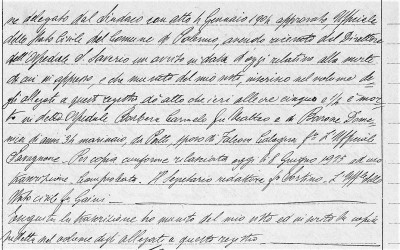 re delegato dal Sindaco con atto 4 Gennaio 1904 approvato Ufficiale
dello Stato Civile del Comune di Palermo, avendo ricevuto dal Direttore
dell'Ospedale S. Saverio un avviso in data d'oggi relativo alla morte
di cui in appresso, e che munito del mio visto, inserisco nel volume de
gli allegati a questo registro do atto che ieri alle ore cinque e ½ è mor
to in detto Ospedale Barbera Carmelo fu Matteo e di Barone Dome
nica di anni 36 marinaio, da Patti, sposo di Falcone Calogera F° L'Ufficiale
Per copia conforme rilasciata oggi 6 8 Giugno 1905 ad uso
trascrizione. Il Segretario redattore F° L'Uff. dello
Stato civile F°
Eseguita la trascrizione ho munito del mio visto ed inserito la copia
pedetta nel volume degli allegati a questo registro